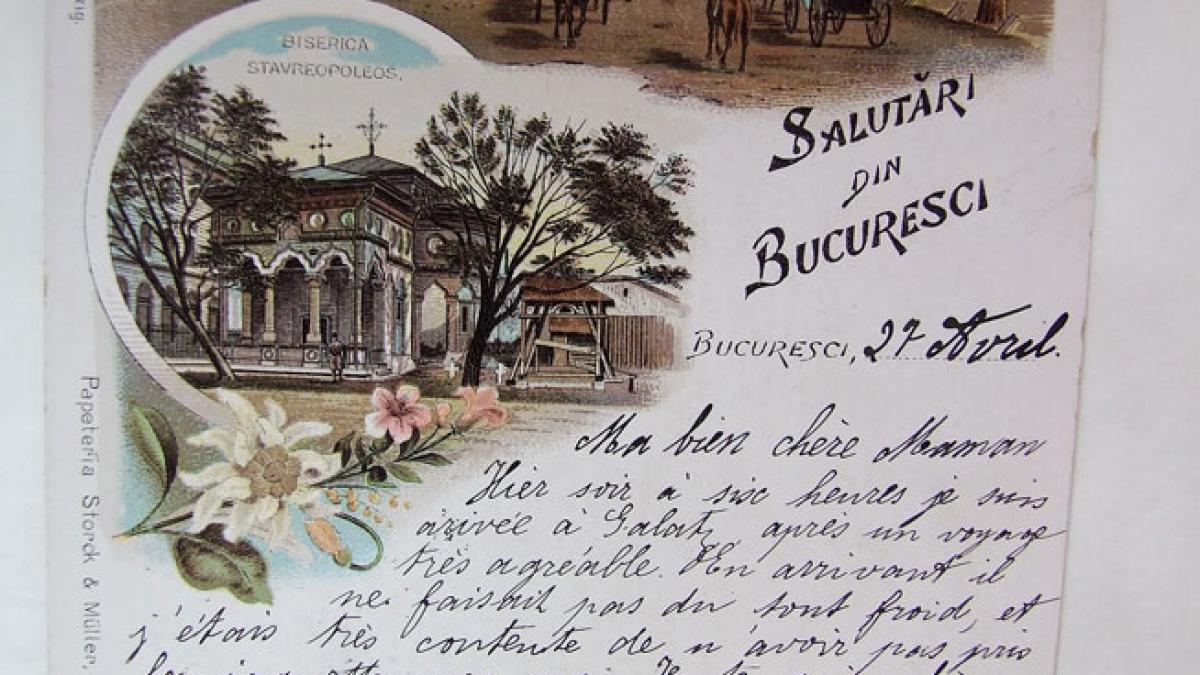 BISERICA
STAVREOPOLEOS.
SALUTĂRI
DIN
BUCURESCI
BUCURESCI, 27 Avril.
Ma bien chère Maman
Hier soir à six heures je suis
arrivée à Galatz après un voyage
très agréable. En arrivant il
ne faisait pas du tout froid, et
j'étais très contente de n'avoir pas pris
Papeteria Storck & Müller,